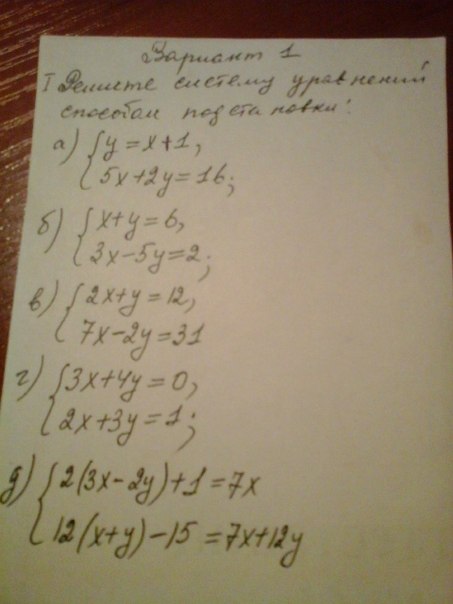 Вариант 1
I Решите систему уравнений
способом подстановки:
а) { y = x+1,
5x+2y=16;
б) { x+y=6,
3x-5y=2;
в) { 2x+y=12,
7x-2y=31
г) { 3x+4y=0,
2x+3y=1;
д) { 2(3x-2y)+1=7x
12(x+y)-15=7x+12y